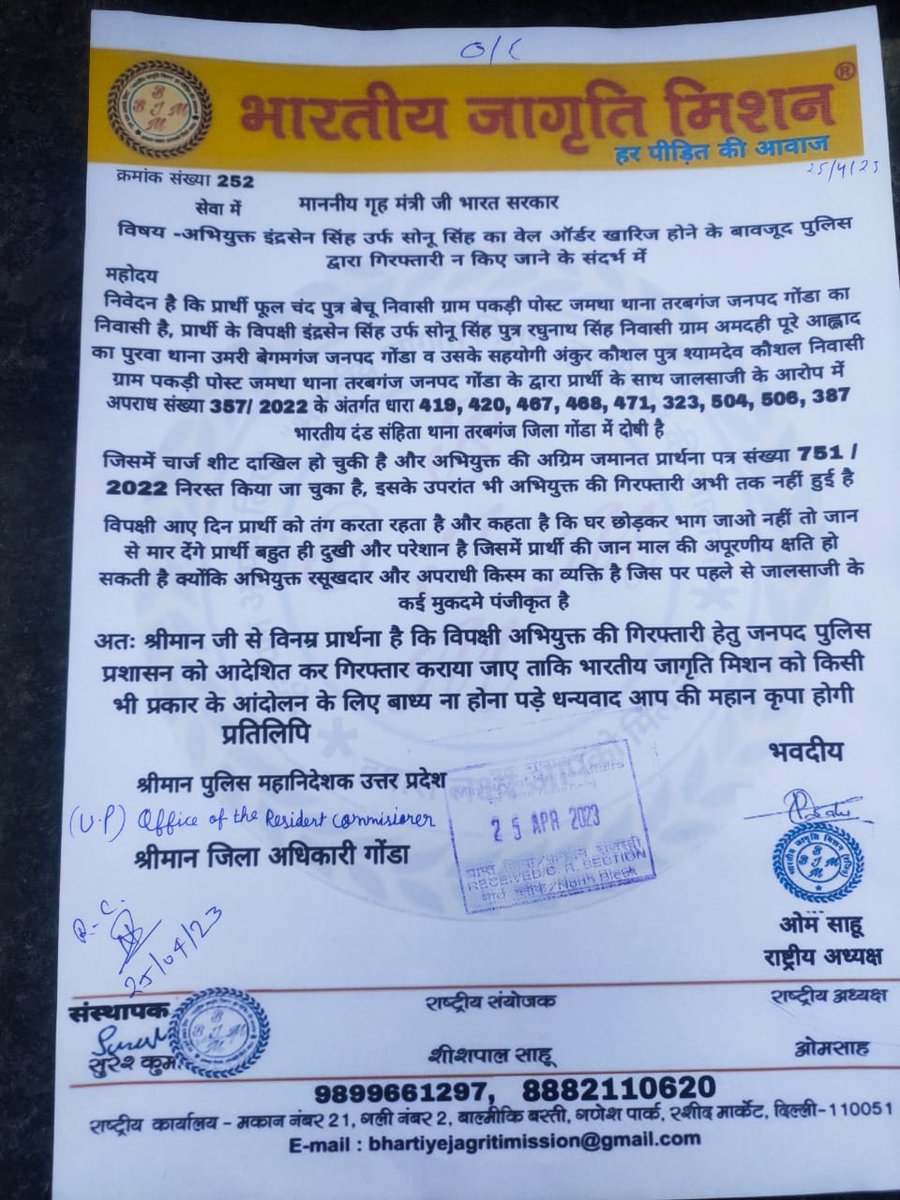 O/C
B
B J M
M
भारतीय जागृति मिशन ®
हर पीड़ित की आवाज
25/4/23
क्रमांक संख्या 252
सेवा में माननीय गृह मंत्री जी भारत सरकार
विषय -अभियुक्त इंद्रसेन सिंह उर्फ सोनू सिंह का वेल ऑर्डर खारिज होने के बावजूद पुलिस
द्वारा गिरफ्तारी न किए जाने के संदर्भ में
महोदय
निवेदन है कि प्रार्थी फूल चंद पुत्र बेचू निवासी ग्राम पकड़ी पोस्ट जमथा थाना तरबगंज जनपद गोंडा का
निवासी है, प्रार्थी के विपक्षी इंद्रसेन सिंह उर्फ सोनू सिंह पुत्र रघुनाथ सिंह निवासी ग्राम अमदही पूरे आह्लाद
का पुरवा थाना उमरी बेगमगंज जनपद गोंडा व उसके सहयोगी अंकुर कौशल पुत्र श्यामदेव कौशल निवासी
ग्राम पकड़ी पोस्ट जमथा थाना तरबगंज जनपद गोंडा के द्वारा प्रार्थी के साथ जालसाजी के आरोप में
अपराध संख्या 357/ 2022 के अंतर्गत धारा 419, 420, 467, 468, 471, 323, 504, 506, 387
भारतीय दंड संहिता थाना तरबगंज जिला गोंडा में दोषी है
जिसमें चार्ज शीट दाखिल हो चुकी है और अभियुक्त की अग्रिम जमानत प्रार्थना पत्र संख्या 751 /
2022 निरस्त किया जा चुका है, इसके उपरांत भी अभियुक्त की गिरफ्तारी अभी तक नहीं हुई है
विपक्षी आए दिन प्रार्थी को तंग करता रहता है और कहता है कि घर छोड़कर भाग जाओ नहीं तो जान
से मार देंगे प्रार्थी बहुत ही दुखी और परेशान है जिसमें प्रार्थी की जान माल की अपूरणीय क्षति हो
सकती है क्योंकि अभियुक्त रसूखदार और अपराधी किस्म का व्यक्ति है जिस पर पहले से जालसाजी के
कई मुकदमे पंजीकृत है
अतः श्रीमान जी से विनम्र प्रार्थना है कि विपक्षी अभियुक्त की गिरफ्तारी हेतु जनपद पुलिस
प्रशासन को आदेशित कर गिरफ्तार कराया जाए ताकि भारतीय जागृति मिशन को किसी
भी प्रकार के आंदोलन के लिए बाध्य ना होना पड़े धन्यवाद आप की महान कृपा होगी
प्रतिलिपि
भवदीय
श्रीमान पुलिस महानिदेशक उत्तर प्रदेश
(U.P) Office of the Resident Commisioner
श्रीमान जिला अधिकारी गोंडा
25 APR 2023
RECEIVED/C. R. SECTION
नार्थ ब्लॉक/North Block
25/04/23
ओम साहू
राष्ट्रीय अध्यक्ष
संस्थापक राष्ट्रीय संयोजक राष्ट्रीय अध्यक्ष
सुरेश कुमा शीशपाल साहू ओमसाह
9899661297, 8882110620
राष्ट्रीय कार्यालय - मकान नंबर 21, गली नंबर 2, बाल्मीकि बस्ती, गणेश पार्क, रशीद मार्केट, दिल्ली-110051
E-mail : bhartiyejagritimission@gmail.com